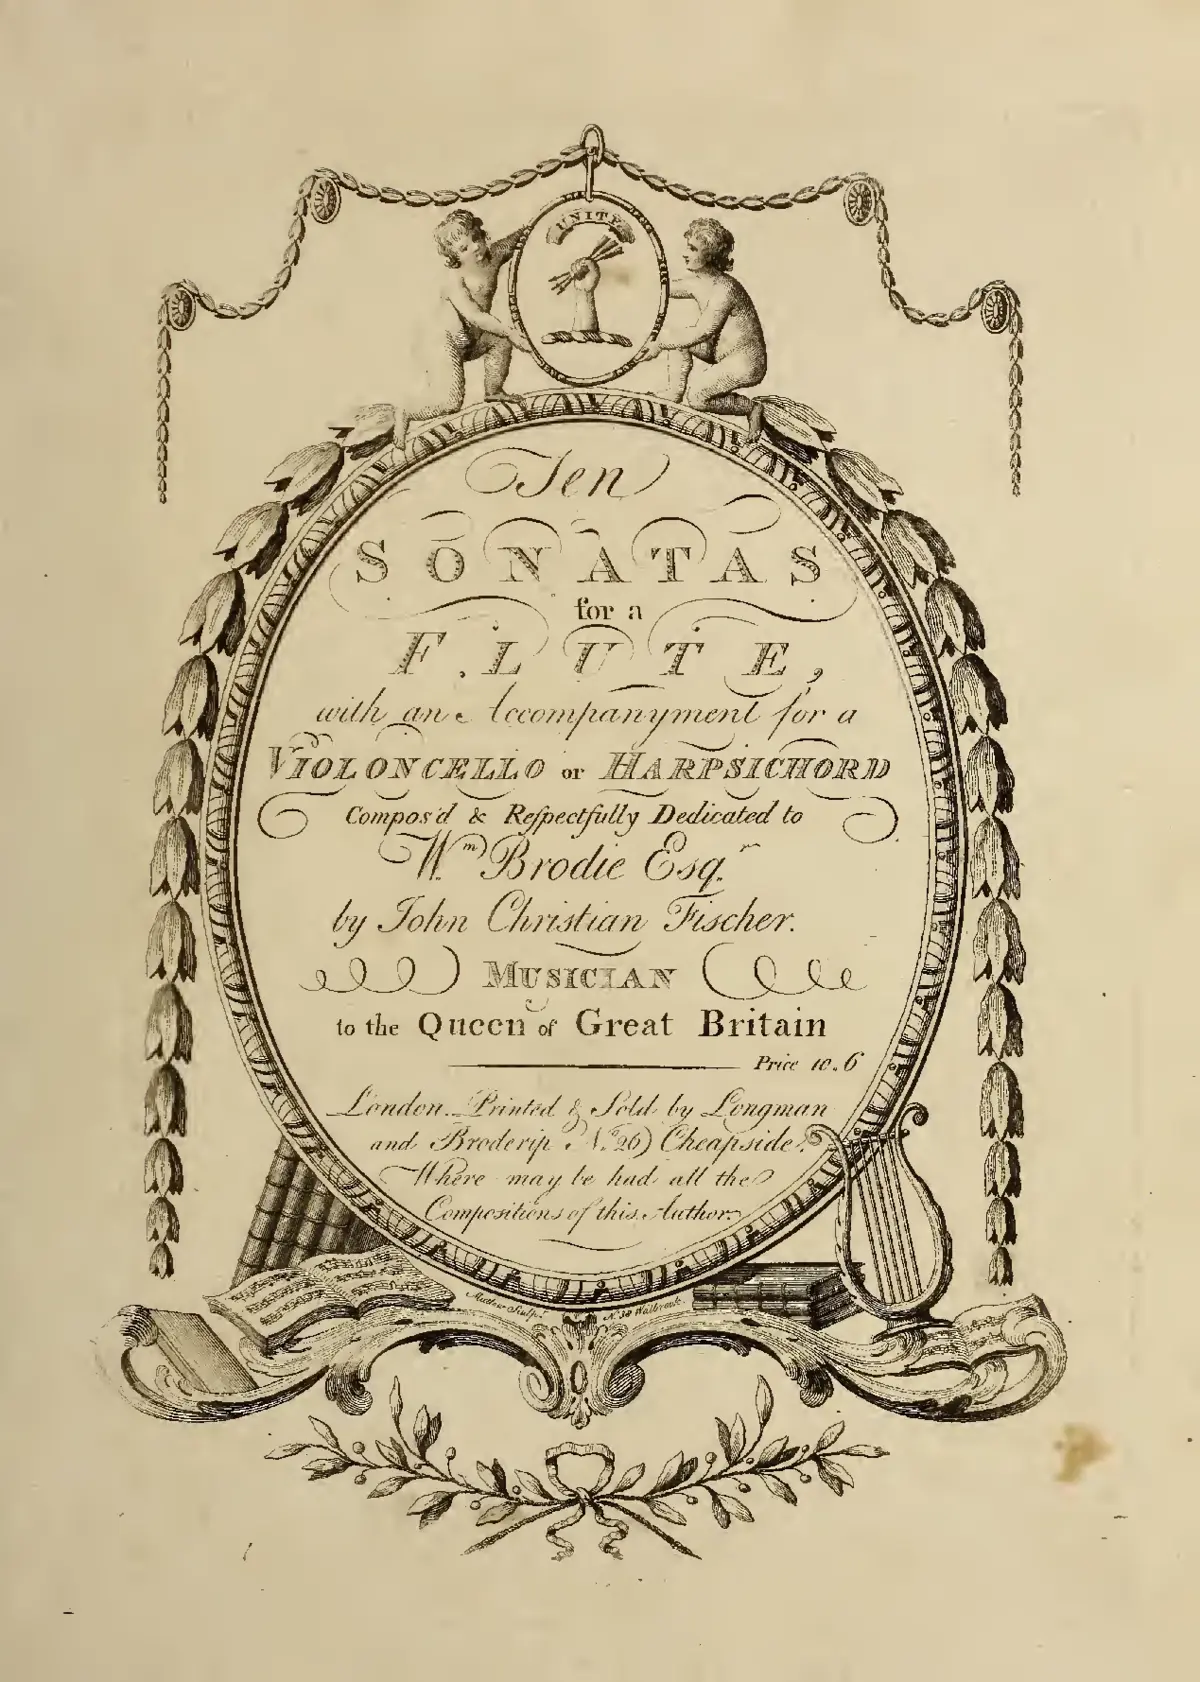 UNITE
Ten
SONATAS
for a
FLUTE,
with an Accompanyment for a
VIOLONCELLO or HARPSICHORD
Compos'd & Reſpectfully Dedicated to
Wm. Brodie Esqr.
by John Christian Fischer.
MUSICIAN
to the Queen of Great Britain
Price 10.6
London. Printed & Sold by Longman
and Broderip No. 26 Cheapside.
Where may be had all the
Compositions of this Author.
Sculpt. No. Walbrook